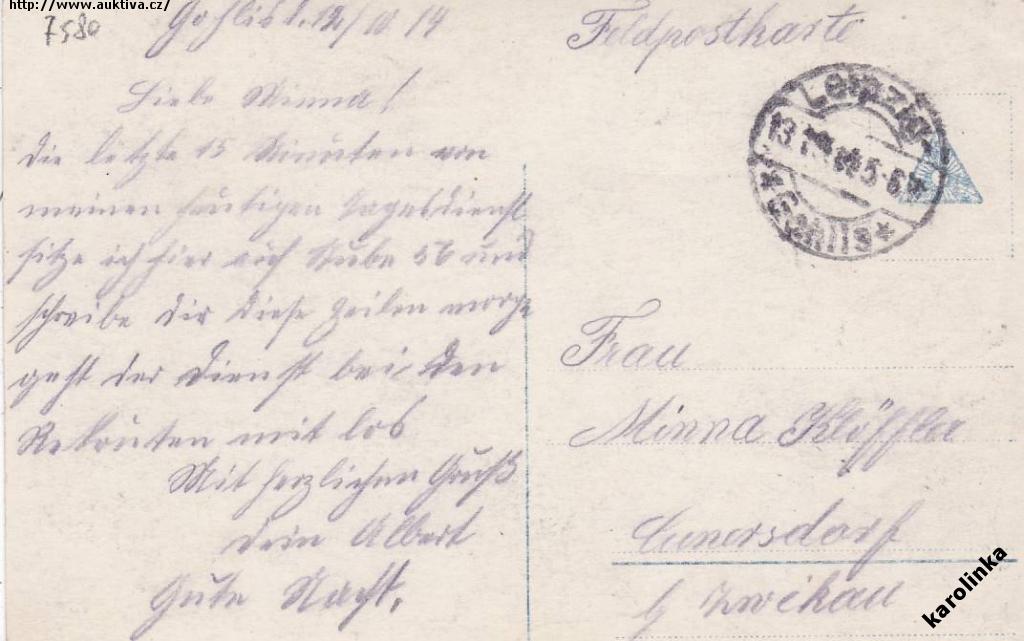 http://www.auktiva.cz/
7580
Gohlis d. 12/10 14
Liebe Minna!
die letzte 15 Minuten von
meinen heutigen Tagesdienst
sitze ich hier auf Stube 56 und
schreibe dir diese Zeilen morge
geht der Dienst bei den
Rekruten mit los
Mit herzlichen Gruß
dein Albert
Gute Nacht.
Feldpostkarte
Leipzig
13. 5-6
Gohlis
Frau
Minna Klöffler
Cunersdorf
b Zwickau
karolinka